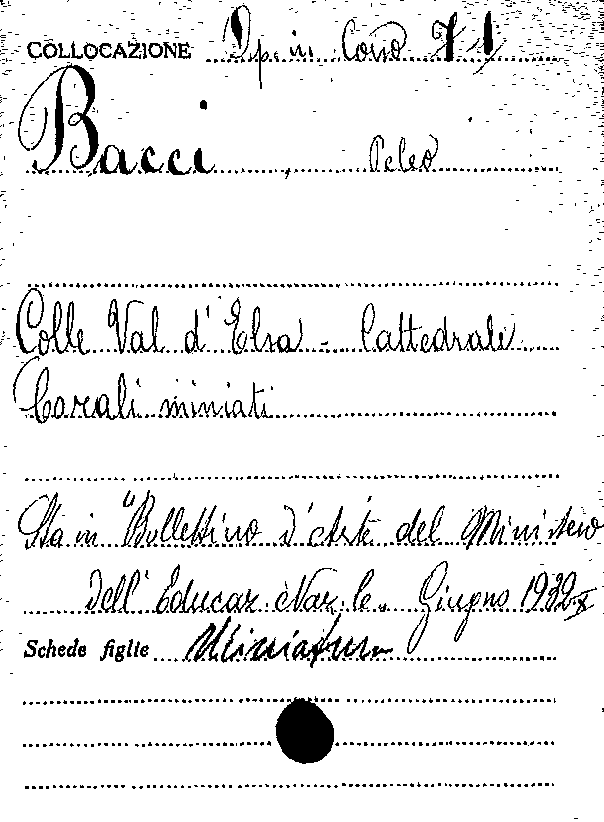 COLLOCAZIONE Op. in Corso 71
Bacci, Peleo
Colle Val d'Elsa - Cattedrale
Corali miniati
Sta in "Bollettino d'Arte del Ministero
Dell'Educaz. Naz.le. Giugno 1932 X
Schede figlie Miniature